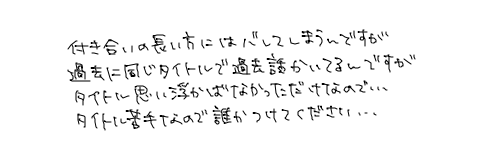 付き合いの長い方にはバレてしまうんですが
過去に同じタイトルで過去話かいてるんですが
タイトル思い浮かばなかっただけなので…
タイトル苦手なので誰かつけてください…